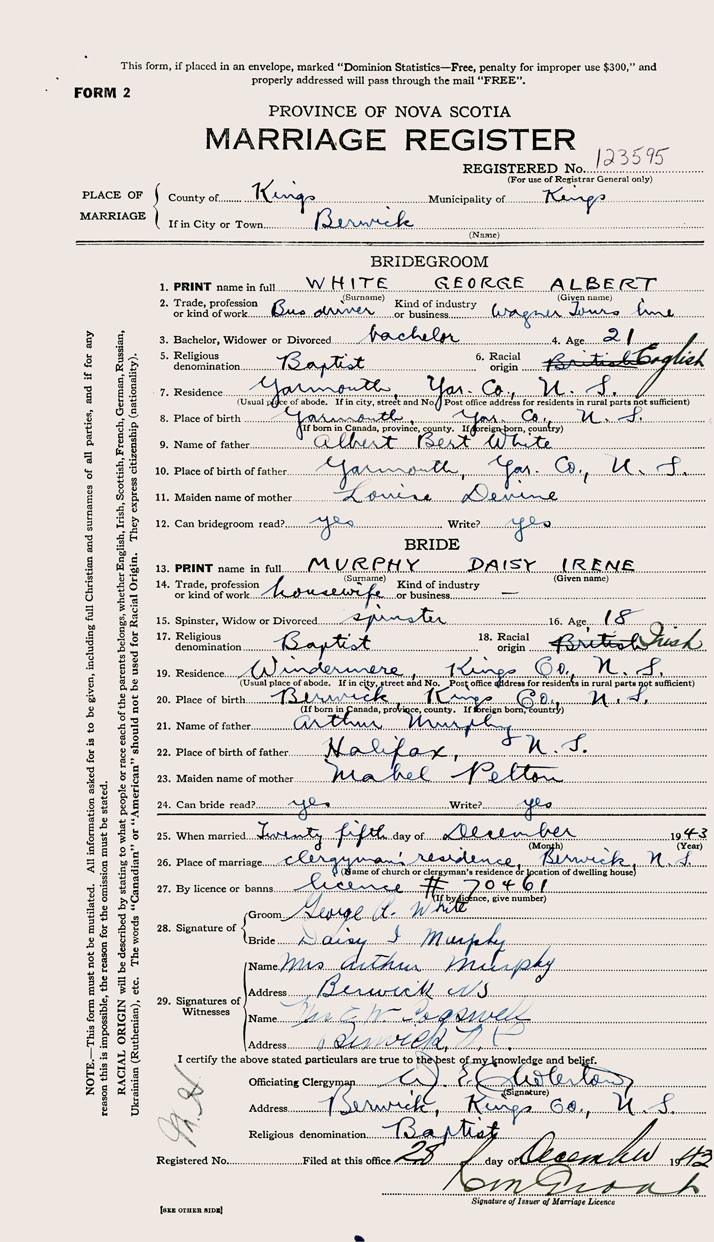 This form, if placed in an envelope, marked “Dominion Statistics—Free, penalty for improper use $300,” and
properly addressed will pass through the mail “FREE”.
FORM 2
PROVINCE OF NOVA SCOTIA
MARRIAGE REGISTER
REGISTERED No. 123595
(For use of Registrar General only)
PLACE OF MARRIAGE
County of Kings Municipality of Kings
If in City or Town Berwick
(Name)
BRIDEGROOM
1. PRINT name in full WHITE GEORGE ALBERT
(Surname) (Given name)
2. Trade, profession or kind of work Bus driver Kind of industry or business Wagner Tours line
3. Bachelor, Widower or Divorced bachelor 4. Age 21
5. Religious denomination Baptist 6. Racial origin British English
7. Residence Yarmouth, Yar. Co., N. S.
(Usual place of abode. If in city, street and No. Post office address for residents in rural parts not sufficient)
8. Place of birth Yarmouth, Yar. Co., N. S.
(If born in Canada, province, county. If foreign born, country)
9. Name of father Albert Bert White
10. Place of birth of father Yarmouth, Yar. Co., N. S.
11. Maiden name of mother Louise Devine
12. Can bridegroom read? yes Write? yes
BRIDE
13. PRINT name in full MURPHY DAISY IRENE
(Surname) (Given name)
14. Trade, profession or kind of work housewife Kind of industry or business —
15. Spinster, Widow or Divorced spinster 16. Age 18
17. Religious denomination Baptist 18. Racial origin British Irish
19. Residence Windermere, Kings Co., N. S.
(Usual place of abode. If in city, street and No. Post office address for residents in rural parts not sufficient)
20. Place of birth Berwick, Kings Co., N. S.
(If born in Canada, province, county. If foreign born, country)
21. Name of father Arthur Murphy
22. Place of birth of father Halifax, N. S.
23. Maiden name of mother Mabel Pelton
24. Can bride read? yes Write? yes
25. When married Twenty fifth day of December 1943
(Month) (Year)
26. Place of marriage clergyman's residence, Berwick, N. S.
(Name of church or clergyman's residence or location of dwelling house)
27. By licence or banns licence # 70461
(If by licence, give number)
28. Signature of
Groom George A. White
Bride Daisy I Murphy
29. Signatures of Witnesses
Name Mrs Arthur Murphy
Address Berwick NS
Name Mrs Cogswell
Address Berwick, N.S.
I certify the above stated particulars are true to the best of my knowledge and belief.
Officiating Clergyman
(Signature)
Address Berwick, Kings Co., N. S.
Religious denomination Baptist
Registered No. Filed at this office 28 day of December 1943
Signature of Issuer of Marriage Licence
[SEE OTHER SIDE]
NOTE.—This form must not be mutilated. All information asked for is to be given, including full Christian and surnames of all parties, and if for any
reason this is impossible, the reason for the omission must be stated.
RACIAL ORIGIN will be described by stating to what people or race each of the parents belongs, whether English, Irish, Scottish, French, German, Russian,
Ukrainian (Ruthenian), etc. The words “Canadian” or “American” should not be used for Racial Origin. They express citizenship (nationality).